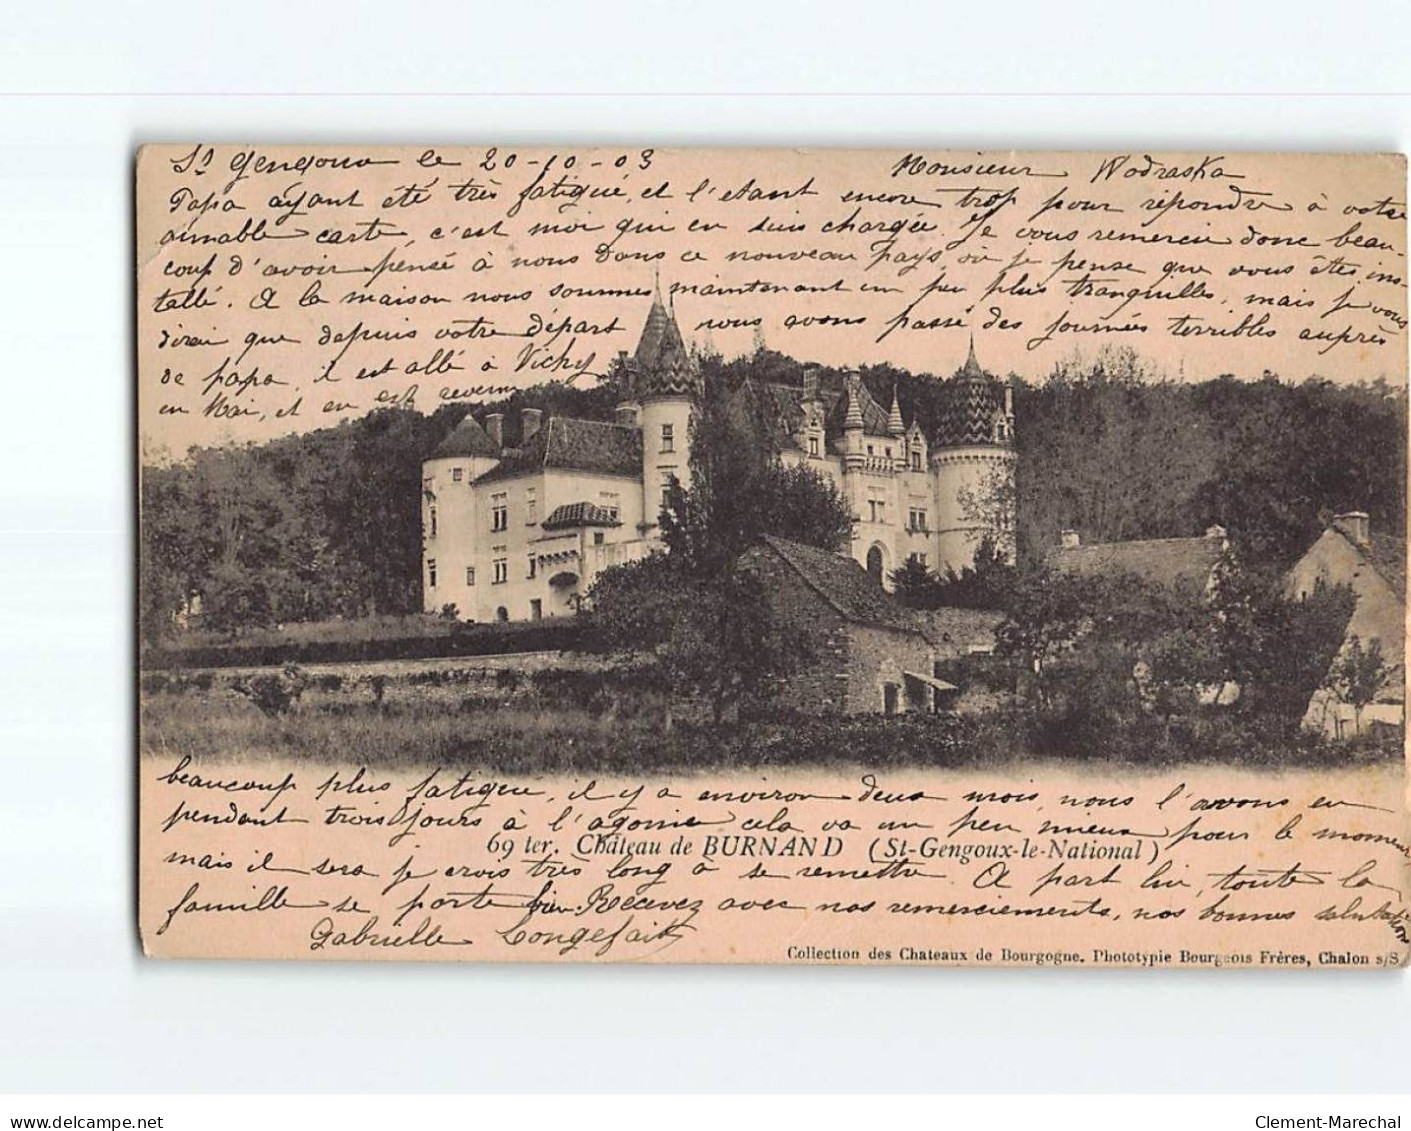 St Gengoux le 20-10-03 Monsieur Wodraska
Papa ayant été très fatigué, et l'étant encore trop pour répondre à votre
aimable carte, c'est moi qui en suis chargée. Je vous remercie donc beau-
coup d'avoir pensé à nous dans ce nouveau pays, où je pense que vous êtes ins-
tallé. A la maison nous sommes maintenant un peu plus tranquilles, mais je vous
dirai que depuis votre départ nous avons passé des journées terribles auprès
de papa, il est allé à Vichy
en Mai, et en est revenu
beaucoup plus fatigué, il y a environ deux mois, nous l'avons eu
pendant trois jours à l'agonie cela va un peu mieux pour le moment
69 ter. Château de BURNAND (St-Gengoux-le-National)
mais il sera je crois très long à se remettre. A part lui, toute la
famille se porte bien. Recevez avec nos remerciements, nos bonnes salutations
Gabrielle Longefait
Collection des Chateaux de Bourgogne. Phototypie Bourgeois Frères, Chalon s/S
delcampe.net
Clement-Marechal